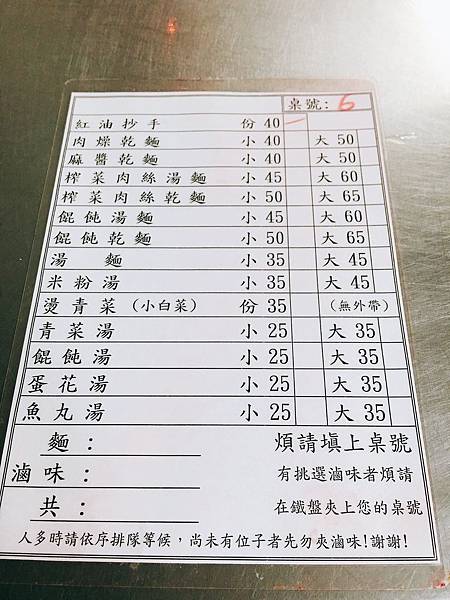 桌號: 6
紅油抄手 份 40 一
肉燥乾麵 小 40 大 50
麻醬乾麵 小 40 大 50
榨菜肉絲湯麵 小 45 大 60
榨菜肉絲乾麵 小 50 大 65
餛飩湯麵 小 45 大 60
餛飩乾麵 小 50 大 65
湯麵 小 35 大 45
米粉湯 小 35 大 45
燙青菜(小白菜) 份 35 (無外帶)
青菜湯 小 25 大 35
餛飩湯 小 25 大 35
蛋花湯 小 25 大 35
魚丸湯 小 25 大 35
麵: 煩請填上桌號
滷味: 有挑選滷味者煩請
共: 在鐵盤夾上您的桌號
人多時請依序排隊等候,尚未有位子者先勿夾滷味!謝謝!